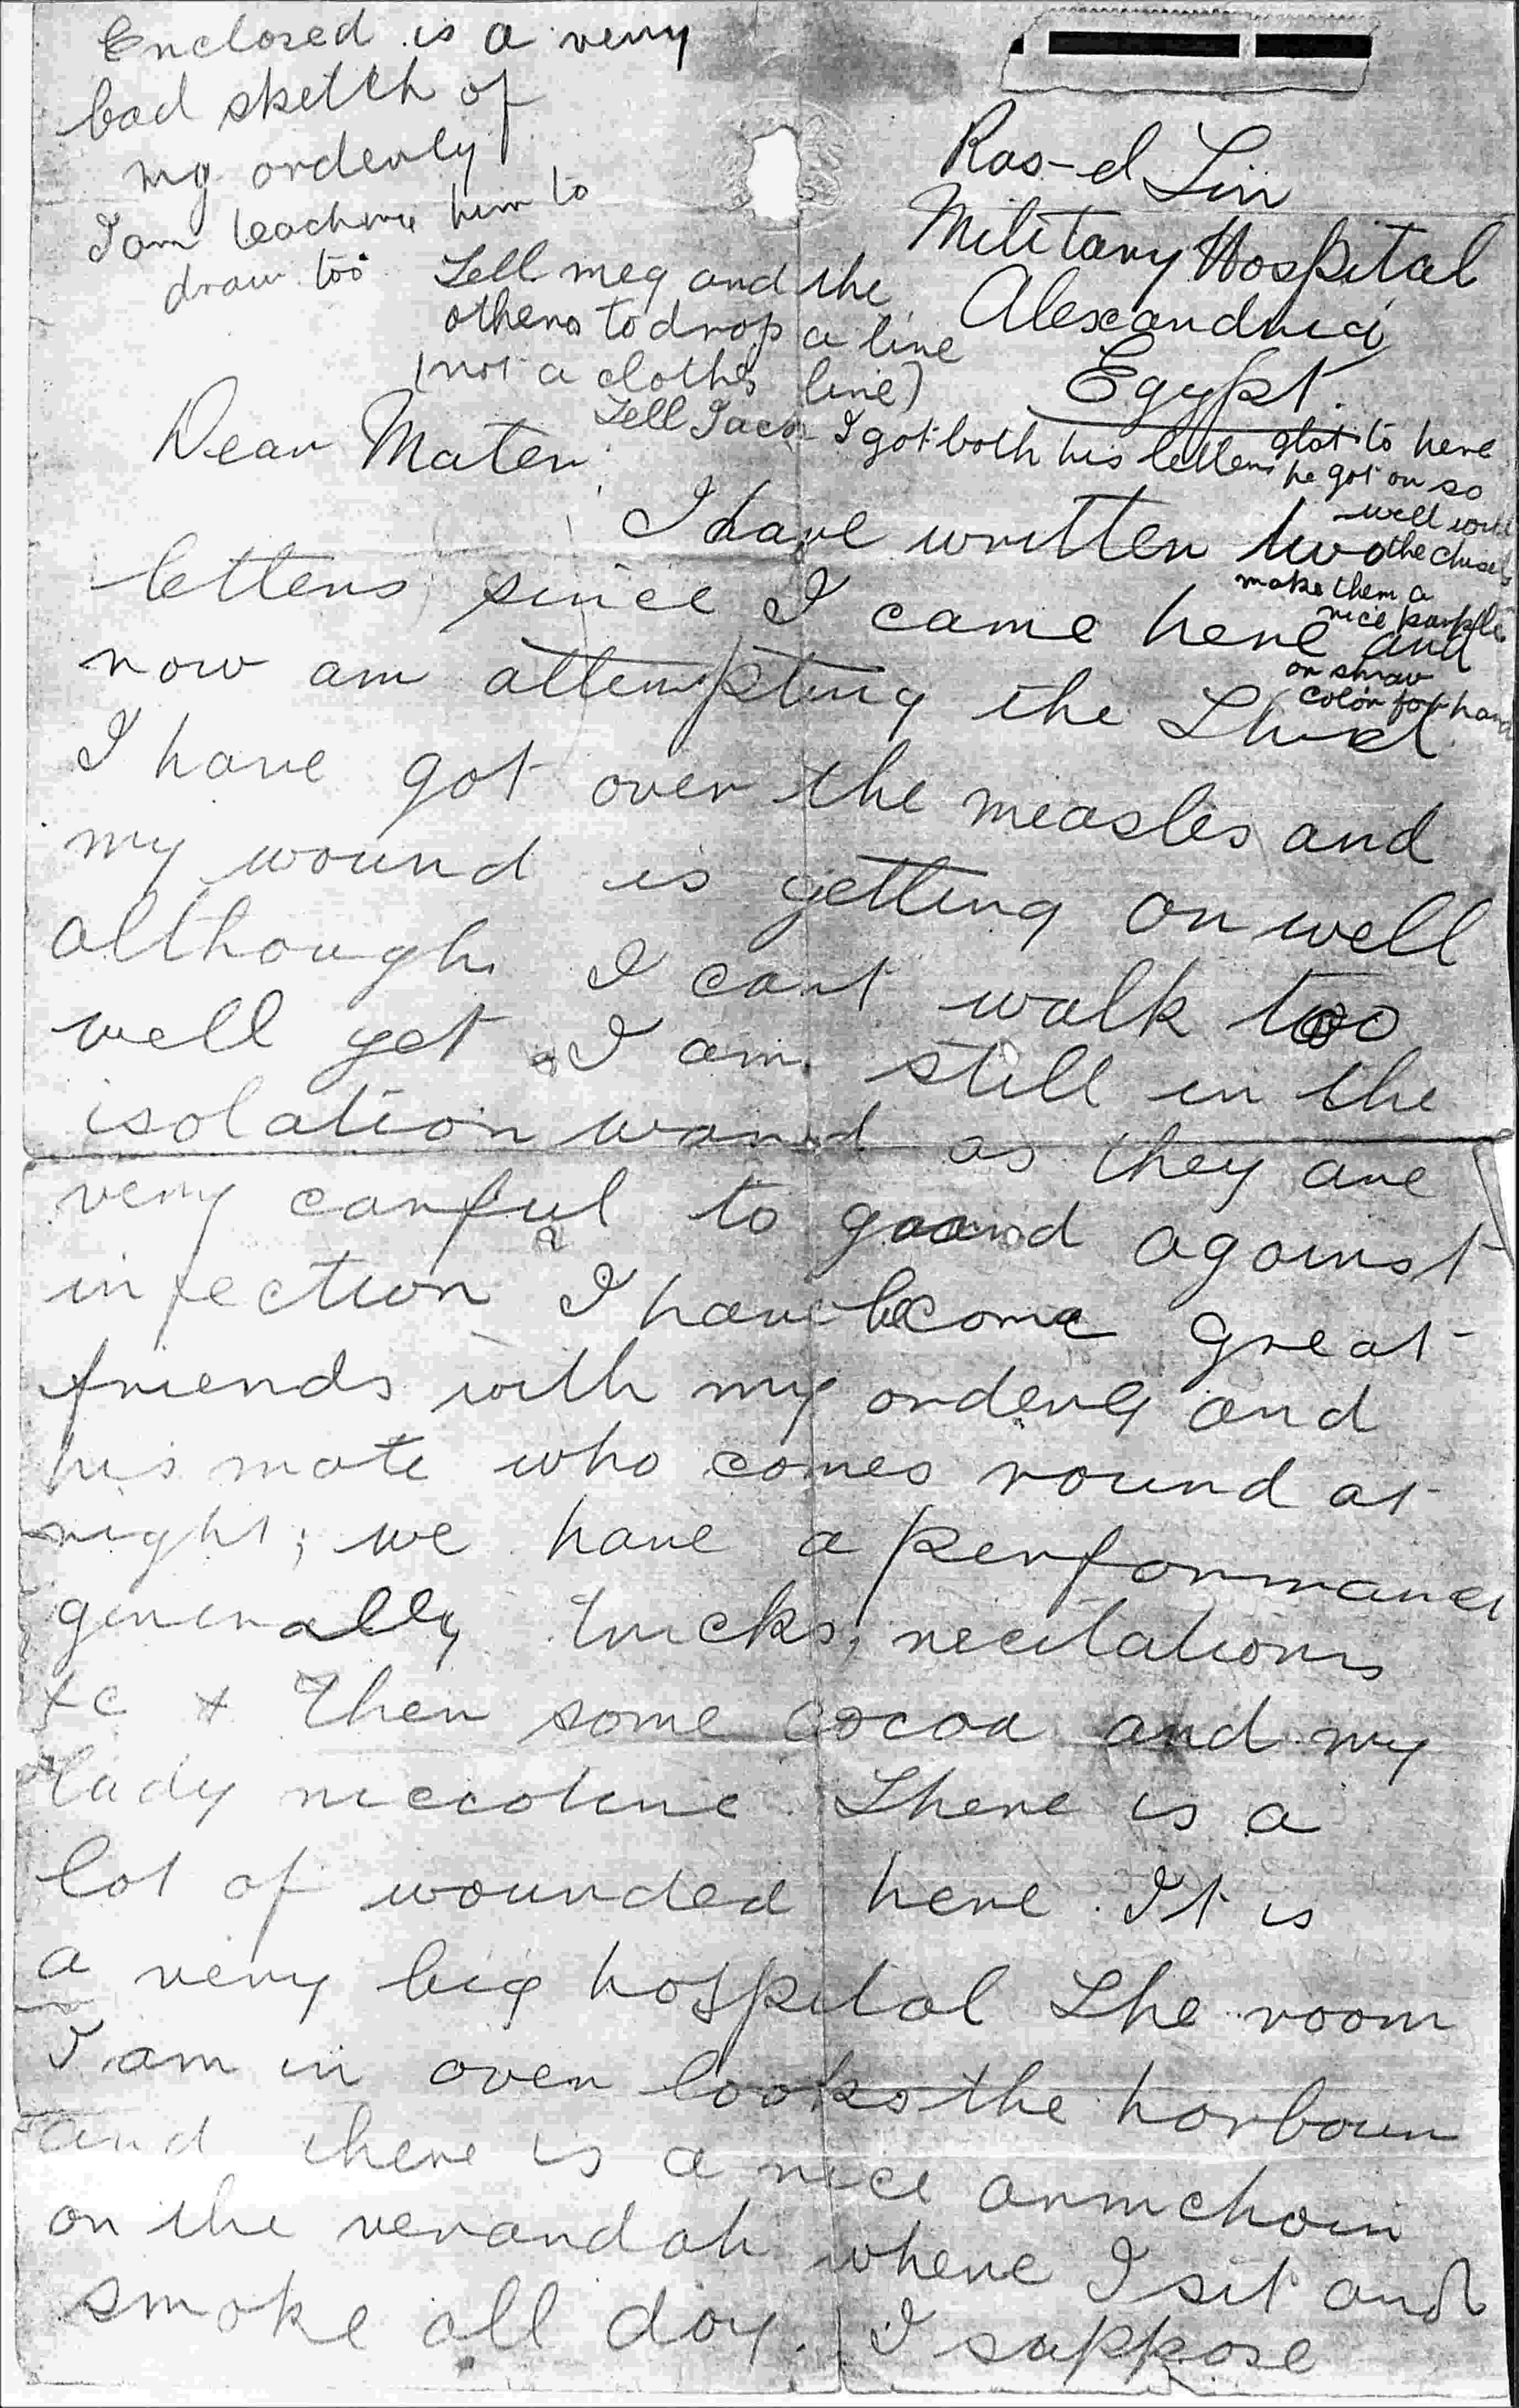 Enclosed is a very
bad sketch of
my orderly
I am teaching him to
draw too
Ras-el Tin
Military Hospital
Alexandria
Egypt.
Tell meg and the
others to drop a line
(not a clothes line)
Tell Jack I got both his letters glat to here
he got on so
well with
the chisels
make them a
nice purple
or straw
color for hard
Dear Mater
I have written two
letters since I came here and
now am attempting the Third
I have got over the measles and
my wound is getting on well
although I cant walk too
well yet I am still in the
isolation ward as they are
very carful to guard against
infection I have become great
friends with my orderly and
his mate who comes round at
night; we have a performance
generally tricks, recitations
&c & Then some cocoa and my
lady niccotine There is a
lot of wounded here. It is
a very big hospital The room
I am in over looks the harbour
and there is a nice armchair
on the verandah where I sit and
smoke all day. I suppose